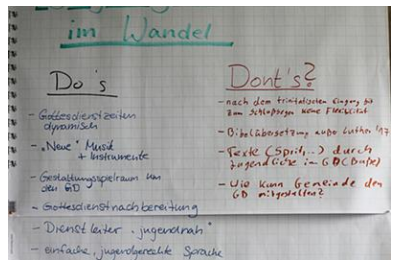 im Wandel
Do's
- Gottesdienstzeiten
dynamisch
- "Neue" Musik
+ Instrumente
- Gestaltungsspielraum
den GD
- Gottesdienstnachbereitung
- Dienstleiter "jugendnah"
- einfache, jugendgerechte Sprache
Dont's?
- nach dem trinitarischen Eingang bis
zum Schlusssegen keine Flexibilität
- Bibelübersetzung außer Luther
- Texte (Spiel,...) durch
Jugendliche im GD (Buße)
- Wie kann Gemeinde den
GD mitgestalten?